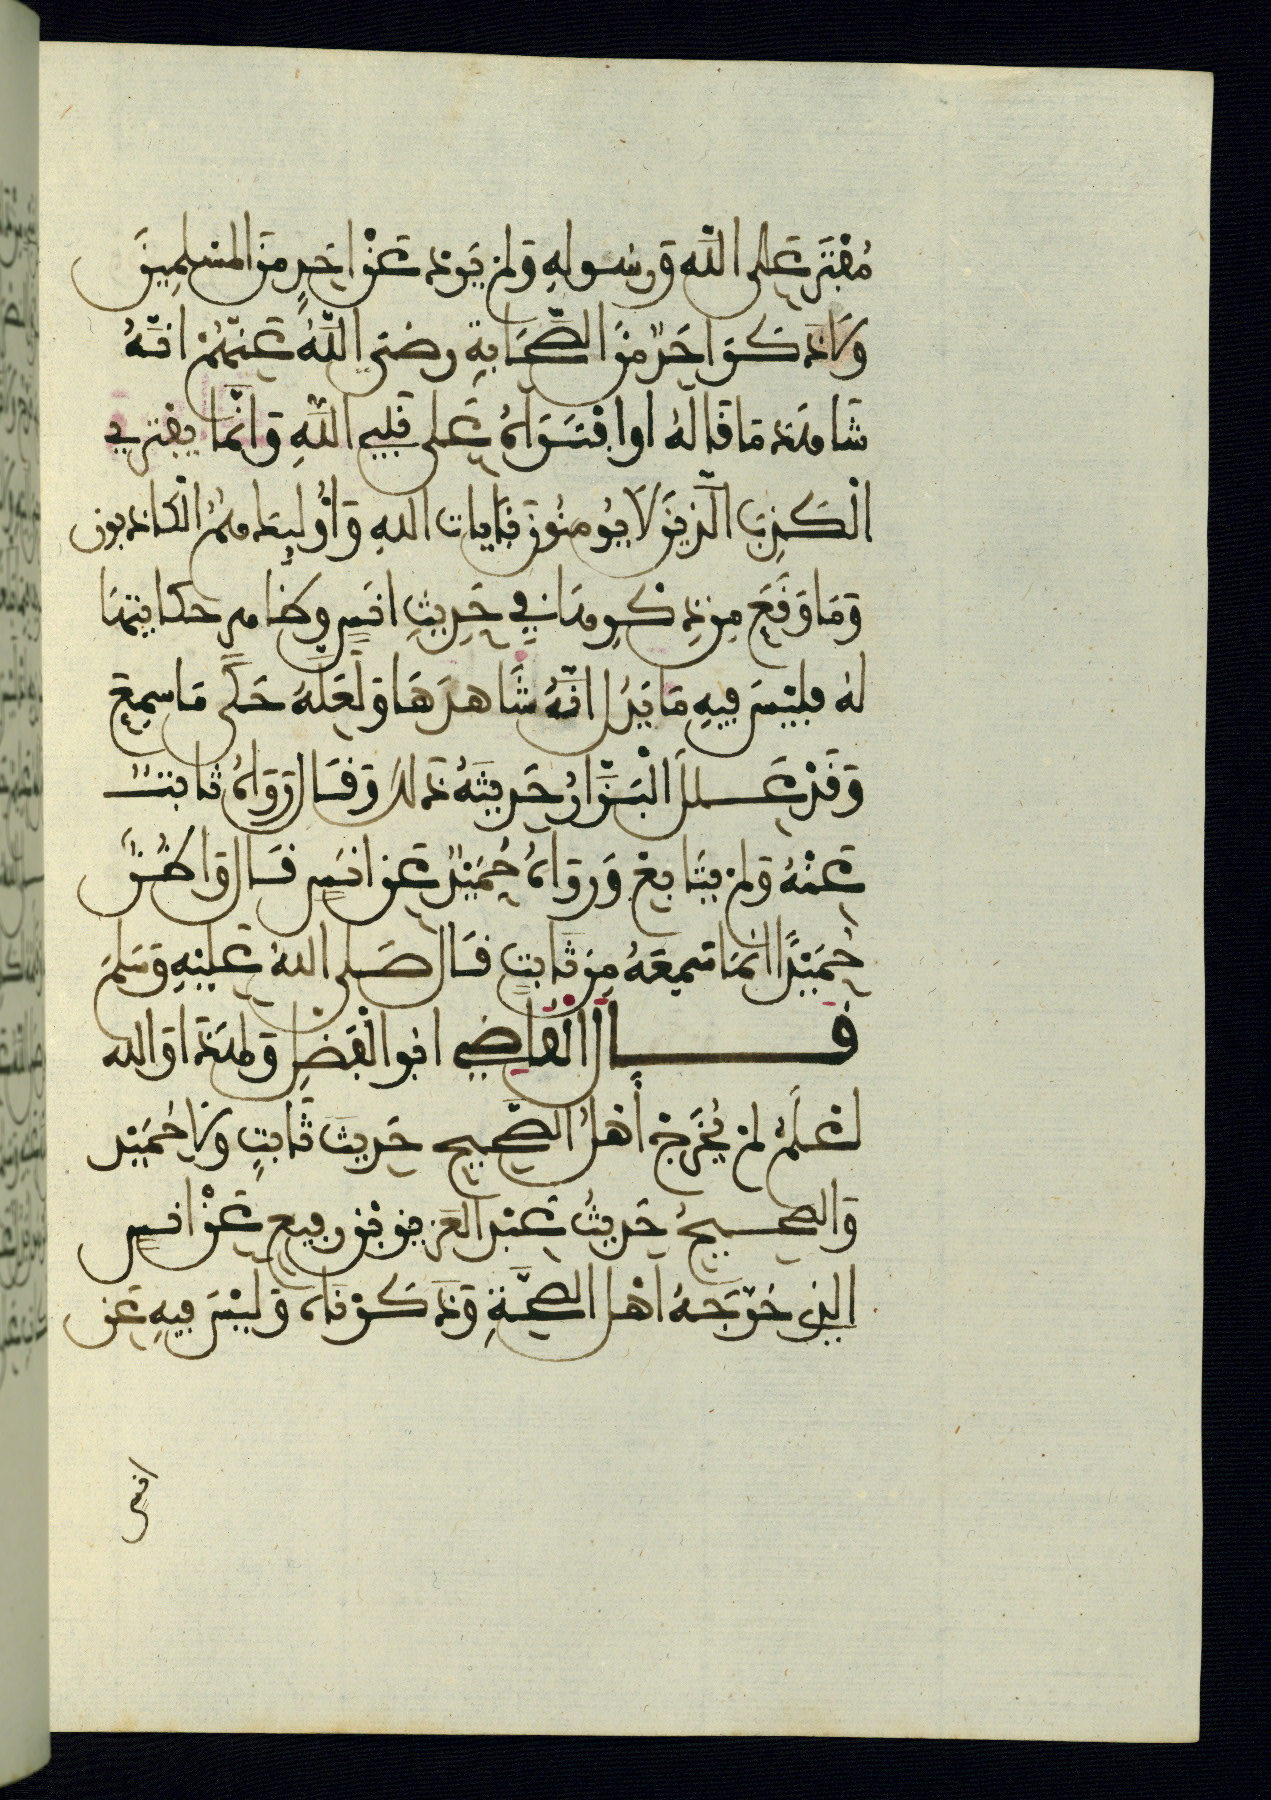 مُفْتَرٍ عَلَى اللَّهِ وَرَسُولِهِ وَلَمْ يَرِدْ عَنْ اَحَدٍ مِنَ الْمُسْلِمِينَ
وَلَا ذَكَرَ اَحَدٌ مِنَ الصَّحَابَةِ رَضِيَ اللَّهُ عَنْهُمْ اَنَّهُ
شَاهَدَ مَا قَالَهُ اَوِ افْتَرَاهُ عَلَى نَبِيِّ اللَّهِ وَإِنَّمَا يَفْتَرِي
الْكَذِبَ الَّذِينَ لَا يُومِنُونَ بِآيَاتِ اللهِ وَأُوْلَئِكَ هُمُ الْكَاذِبُونَ
وَمَا وَقَعَ مِنْ ذِكْرِهَا فِي حَدِيثِ اَنَسٍ وَظَاهِرِ حِكَايَتِهَا
لَهُ فَلَيْسَ فِيهِ مَا يَدُلُّ اَنَّهُ شَاهَدَهَا وَلَعَلَّهُ حَكَى مَا سَمِعَ
وَقَدْ عَلَّلَ الْبَزَّارُ حَدِيثَهُ ذَلِكَ وَقَالَ رَوَاهُ ثَابِتٌ
عَنْهُ وَلَمْ يُتَابَعْ وَرَوَاهُ حُمَيْدٌ عَنْ اَنَسٍ قَالَ وَاَظُنُّ
حُمَيْدًا اِنَّمَا سَمِعَهُ مِنْ ثَابِتٍ قَالَ صَلَّى اللهُ عَلَيْهِ وَسَلَّمَ
قَالَ الْقَاضِي اَبُو الْفَضْلِ وَلِهَذَا وَاللهُ
اَعْلَمُ لَمْ يُخَرِّجْ أَهْلُ الصَّحِيحِ حَدِيثَ ثَابِتٍ وَلَا حُمَيْدٍ
وَالصَّحِيحُ حَدِيثُ عَبْدِ الْعَزِيزِ بْنِ رُفَيْعٍ عَنْ اَنَسٍ
الَّذِي خَرَّجَهُ اَهْلُ الصِّحَّةِ وَذَكَرْنَاهُ وَلَيْسَ فِيهِ عَنْ
اَنَسٍ